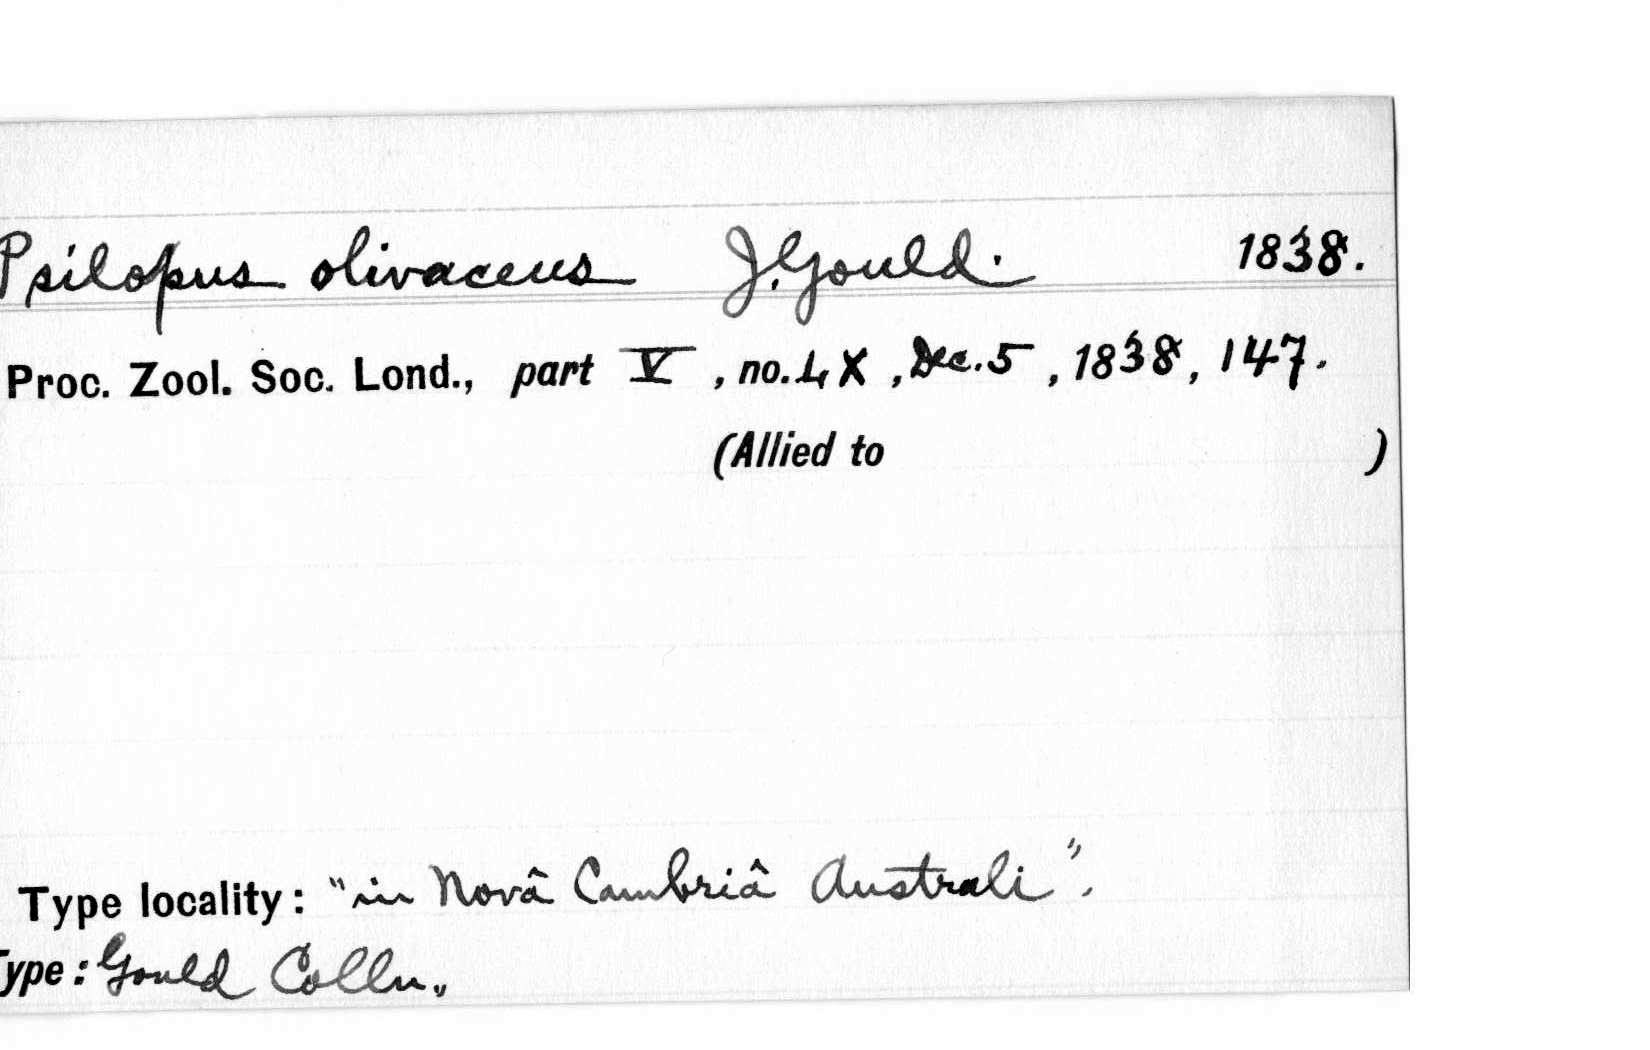 Psilopus olivaceus J. Gould. 1838.
Proc. Zool. Soc. Lond., part V, no. LX, Dec. 5, 1838, 147.
(Allied to )
Type locality: "in Novâ Cambriâ Australi".
Type: Gould Colln.